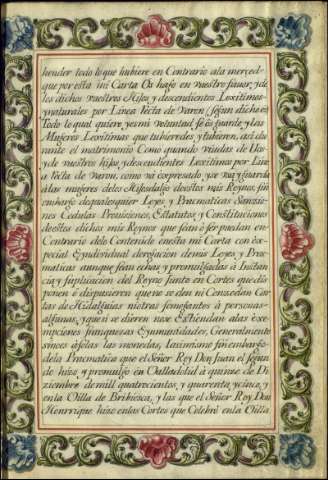 hender todo lo que hubiere en Contrario ala merced
que por esta mi Carta Os hago en vuestro favor, y de
los dichos vuestros Hijos, y descendientes Lexitimos
y naturales por Linea recta de Varon segun dicho es
Todo lo qual quiero, y es mi voluntad se os guarde, y las
Mugeres Lexitimas que tubieredes, y tubieren, asi du
rante el matrimonio Como quando viudas de Uos
y de vuestros hijos, y descendientes Lexitimos por Line
a recta de Varon, como va expresado, y se usa, y guarda
a las mugeres delos Hijosdalgo de estos mis Reynos, sin
embargo de qualesquier Leyes, y Pracmaticas Sancsio
nes Cedulas Provisiones, Estatutos, y Constituciones
de estos dichos mis Reynos que sean o ser puedan en
Contrario delo Contenido en esta mi Carta con es
pecial Eyndividual derogacion de mas Leyes, y Prac
maticas aunque sean echas, y promulgadas à Instan
cia, y suplicacion del Reyno Junto en Cortes que dis
ponen ò dispusieren que no se den ni Concedan Car
tas de Hidalguias nietras semejantes à personas
algunas, y que si se dieren nose Estiendan alas exe
mpciones franquezas Eynmunidades, Generalmente
sino es à solas las monedas, Lasimismo sin embargo
dela Pracmatica que el Señor Rey Don Juan el segun
do hizo, y promulgo en Valladolid à quinze de Di
ziembre de mill quatrocientos, y quarenta, y cinco, y
enla Villa de Bribiesca, y las que el Señor Rey Don
Henrrique hizo en las Cortes que Celebrò enla Villa